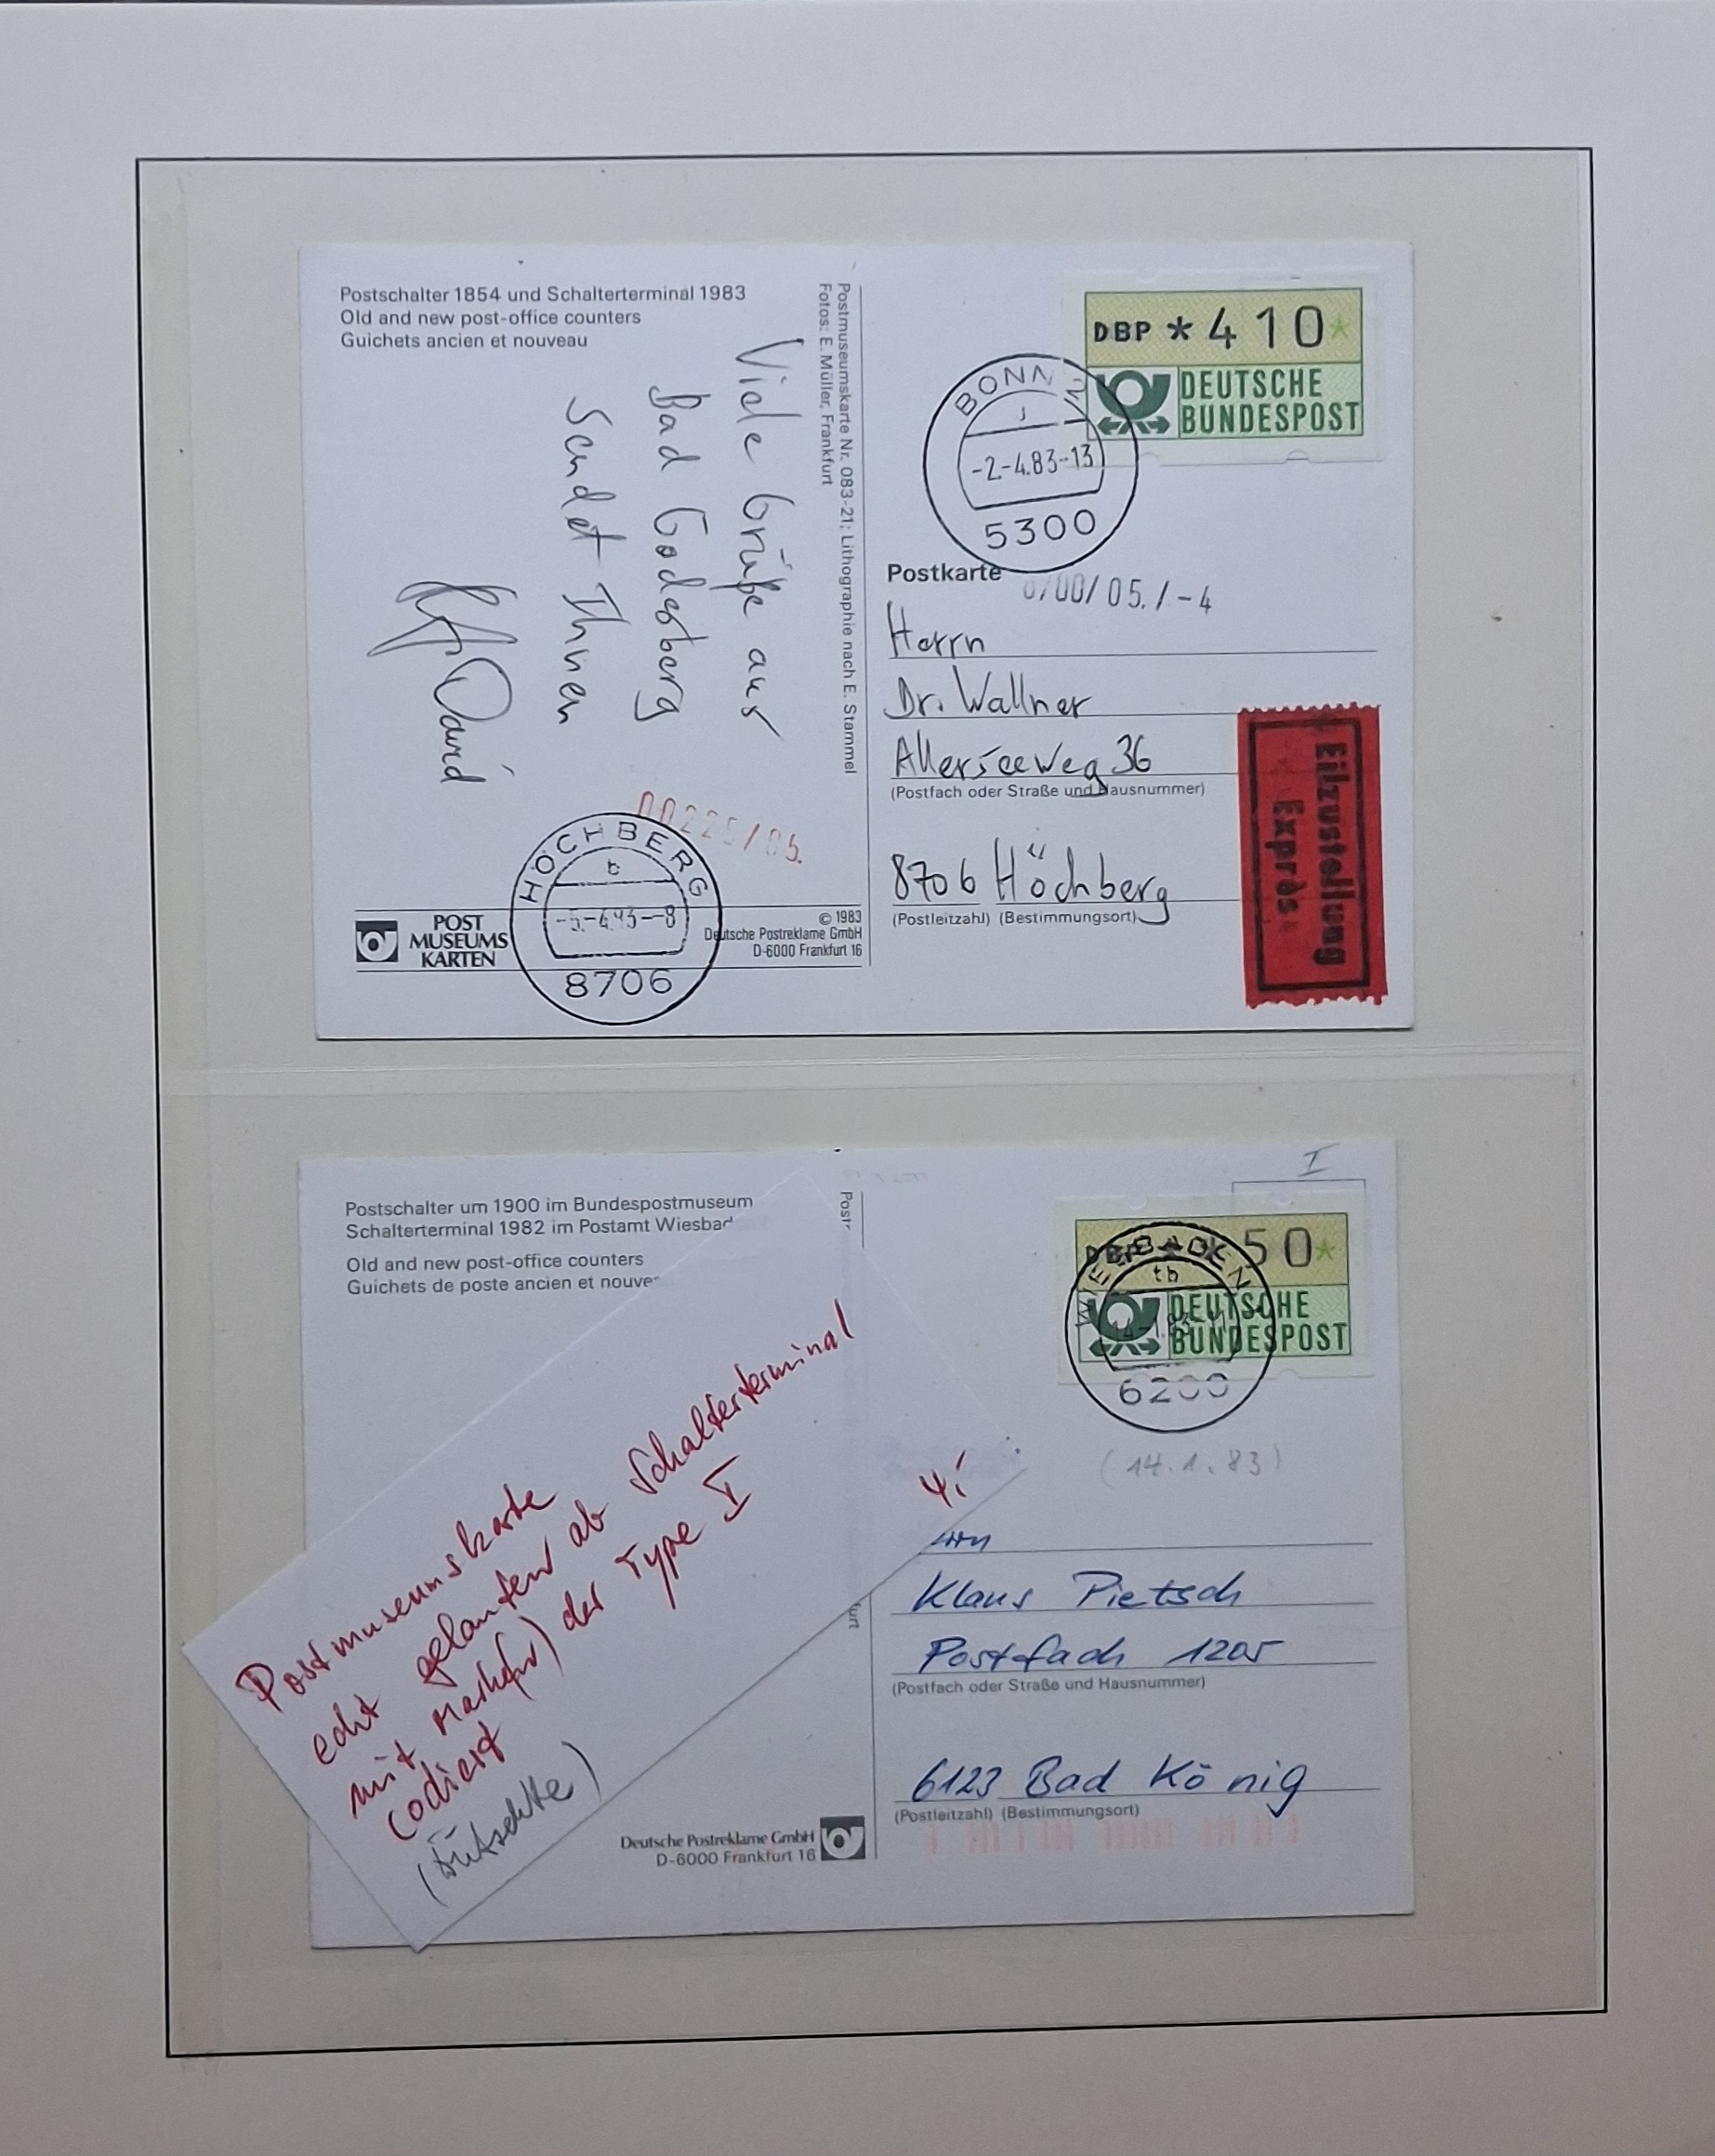 Postschalter 1854 und Schalterterminal 1983
Old and new post-office counters
Guichets ancien et nouveau
Viele Grüße aus
Bad Godesberg
sendet Ihnen
David
Postmuseumskarte Nr. 083-21; Lithographie nach E. Stammel
Fotos: E. Müller, Frankfurt
DBP *410*
DEUTSCHE
BUNDESPOST
BONN
-2.-4.83-13
5300
Postkarte
/05./-4
Herrn
Dr. Wallner
Allerseeweg 36
(Postfach oder Straße und Hausnummer)
8706 Höchberg
(Postleitzahl) (Bestimmungsort)
Eilzustellung
Exprès
00225/05.
HÖCHBERG
b
8706
POST
MUSEUMS
KARTEN
© 1983
Deutsche Postreklame GmbH
D-6000 Frankfurt 16
Postschalter um 1900 im Bundespostmuseum
Schalterterminal 1982 im Postamt Wiesbad
Old and new post-office counters
Guichets de poste ancien et nouve
Post
I
DBP 50*
DEUTSCHE
BUNDESPOST
WIESBADEN
tb
6200
(14.1.83)
Postmuseumskarte
echt gelaufen ab Schalterterminal
mit der Type I
codiert
4,-
Klaus Pietsch
Postfach 1205
(Postfach oder Straße und Hausnummer)
6123 Bad König
(Postleitzahl) (Bestimmungsort)
furt
Deutsche Postreklame GmbH
D-6000 Frankfurt 16